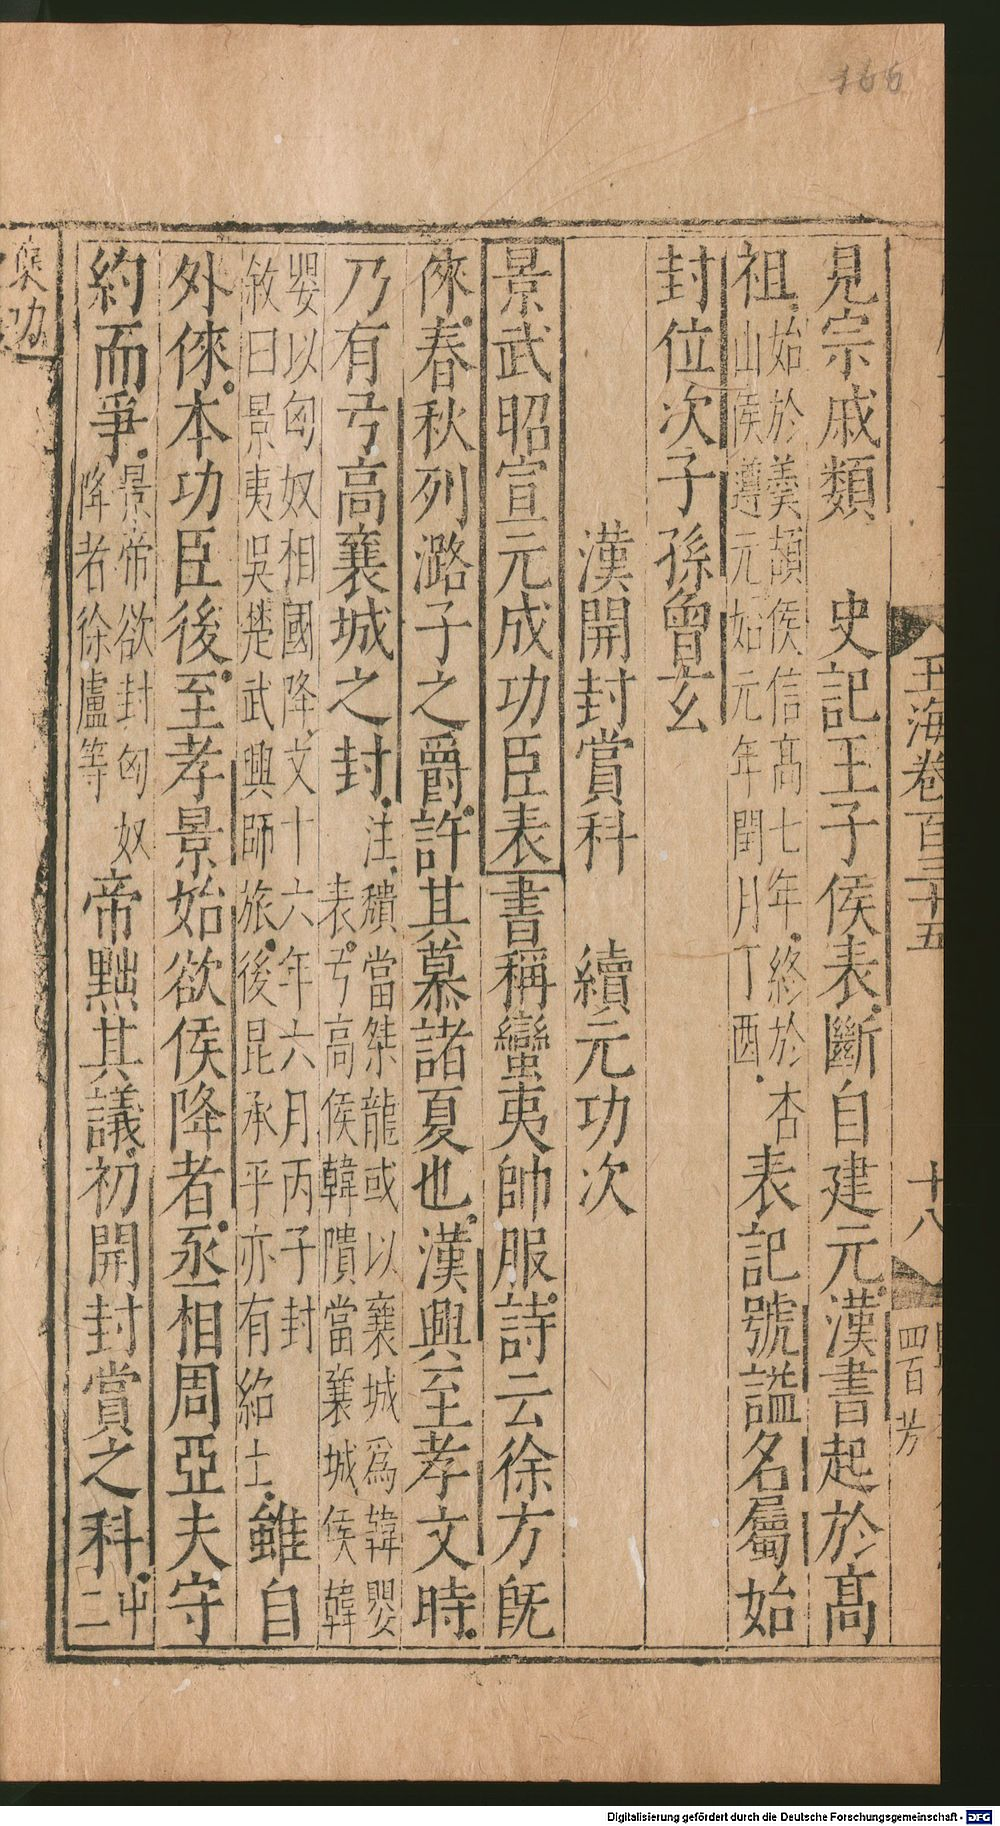 166
玉海卷百三十五
十八
四百
芳
見宗戚類　史記王子侯表斷自建元漢書起於高
祖始於羹頡侯信高七年終於杏
山侯遵元始元年閏月丁酉表記號謚名屬始
封位次子孫曾玄
漢開封賞科　續元功次
景武昭宣元成功臣表書稱蠻夷帥服詩云徐方旣
倈春秋列潞子之爵許其慕諸夏也漢興至孝文時
乃有弓高襄城之封注穨當桀龍或以襄城爲韓嬰
表弓高侯韓隤當襄城侯韓
嬰以匈奴相國降文十六年六月丙子封
敘曰景夷吳楚武興師旅後昆承平亦有紹土雖自
外倈本功臣後至孝景始欲侯降者丞相周亞夫守
約而爭景帝欲封匈奴
降者徐盧等帝黜其議初開封賞之科中
二
集功
Digitalisierung gefördert durch die Deutsche Forschungsgemeinschaft - DFG